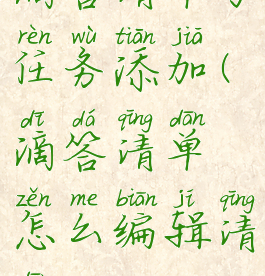 rèn wù tiān jiā
任务添加(
dī dá qīng dān
滴答清单
zěn me biān jí qīng
怎么编辑清